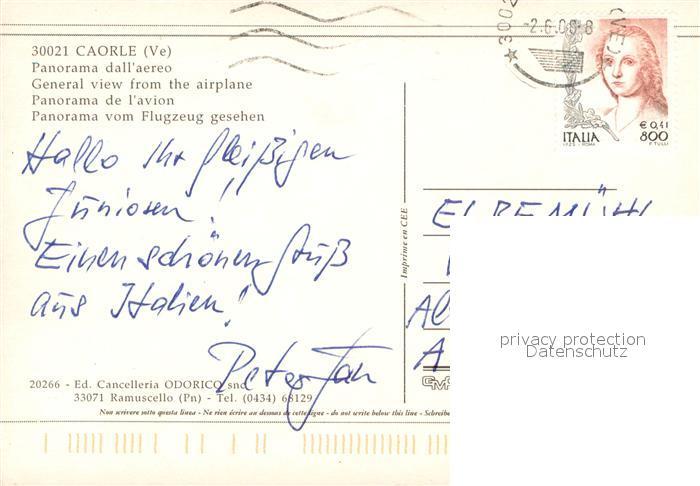 30021 CAORLE (Ve)
Panorama dall'aereo
General view from the airplane
Panorama de l'avion
Panorama vom Flugzeug gesehen
Hallo Ihr fleißigen
!!
Einen schönen Gruß
aus Italien!
Peter
20266 - Ed. Cancelleria ODORICO snc
33071 Ramuscello (Pn) - Tel. (0434) 68129
Non scrivere sotto questa linea - Ne rien écrire au dessous de cette ligne - do not write below this line -
Imprime en CEE
3002
-2.6.00-8
(VE)
€ 0,41
ITALIA 800
I.P.Z.S. - ROMA F. TULLI
privacy protection
Datenschutz